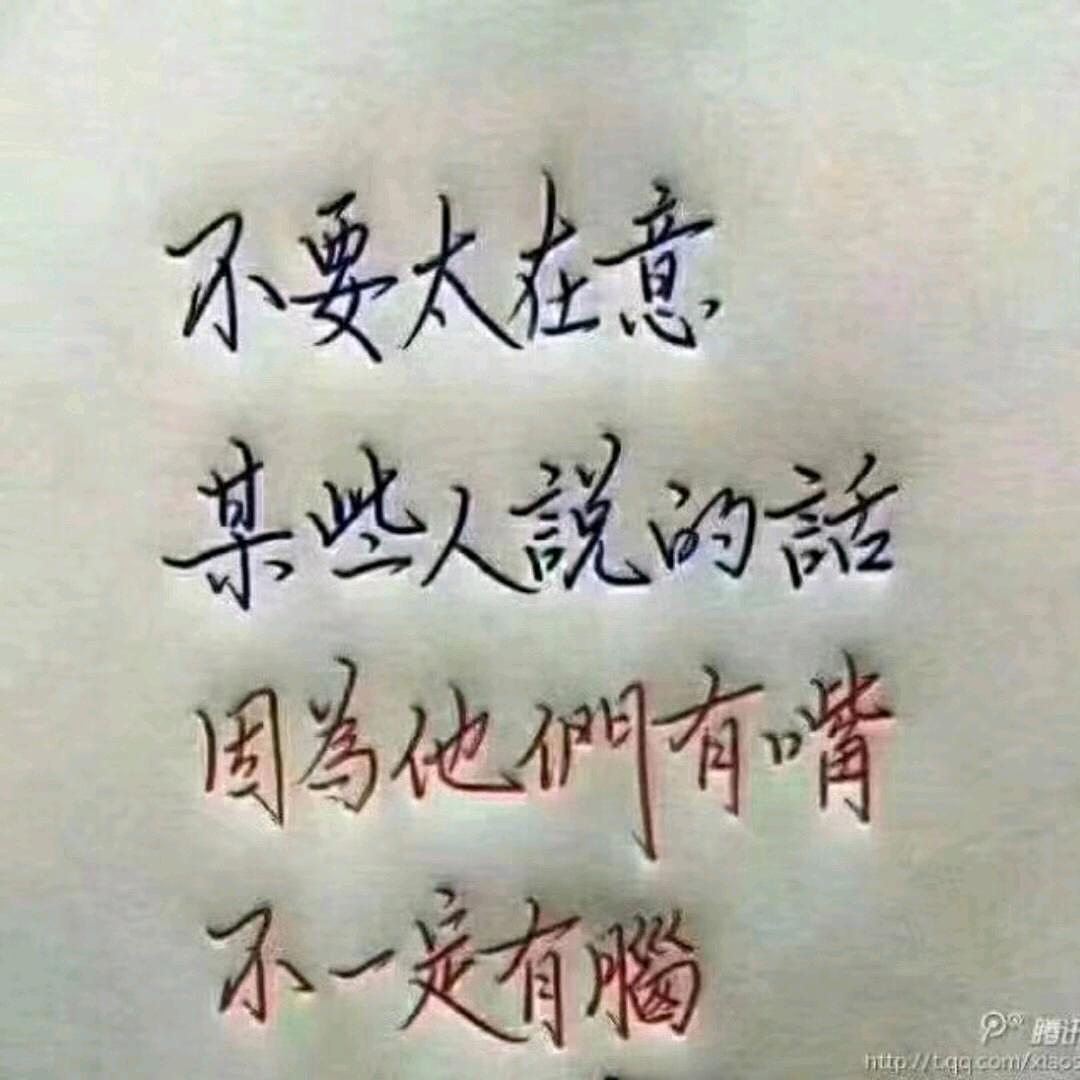 不要太在意
某些人說的話
因為他們有嘴
不一定有腦
腾讯
http://t.qq.com/xiaos